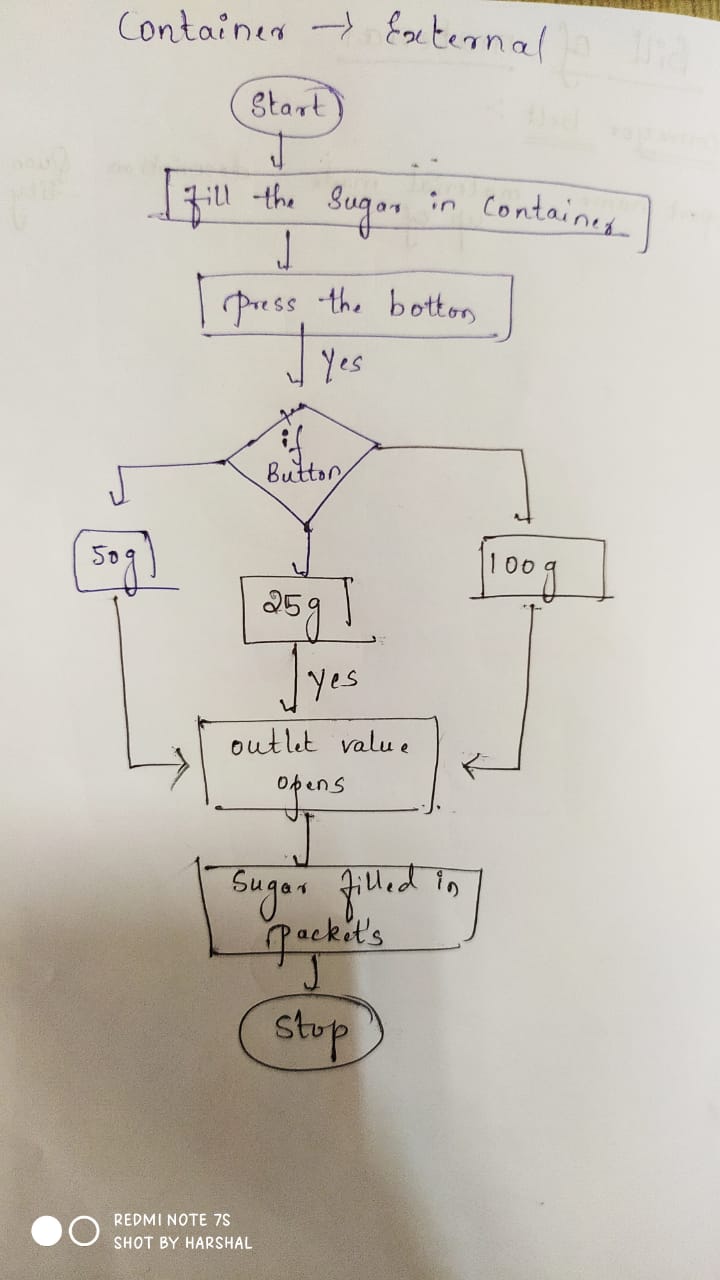 Container → External
Start
fill the Sugar in Container
press the botton
Yes
if
Button
50g
25g
100g
Yes
outlet value
opens
Sugar filled in
packet's
Stop
REDMI NOTE 7S
SHOT BY HARSHAL